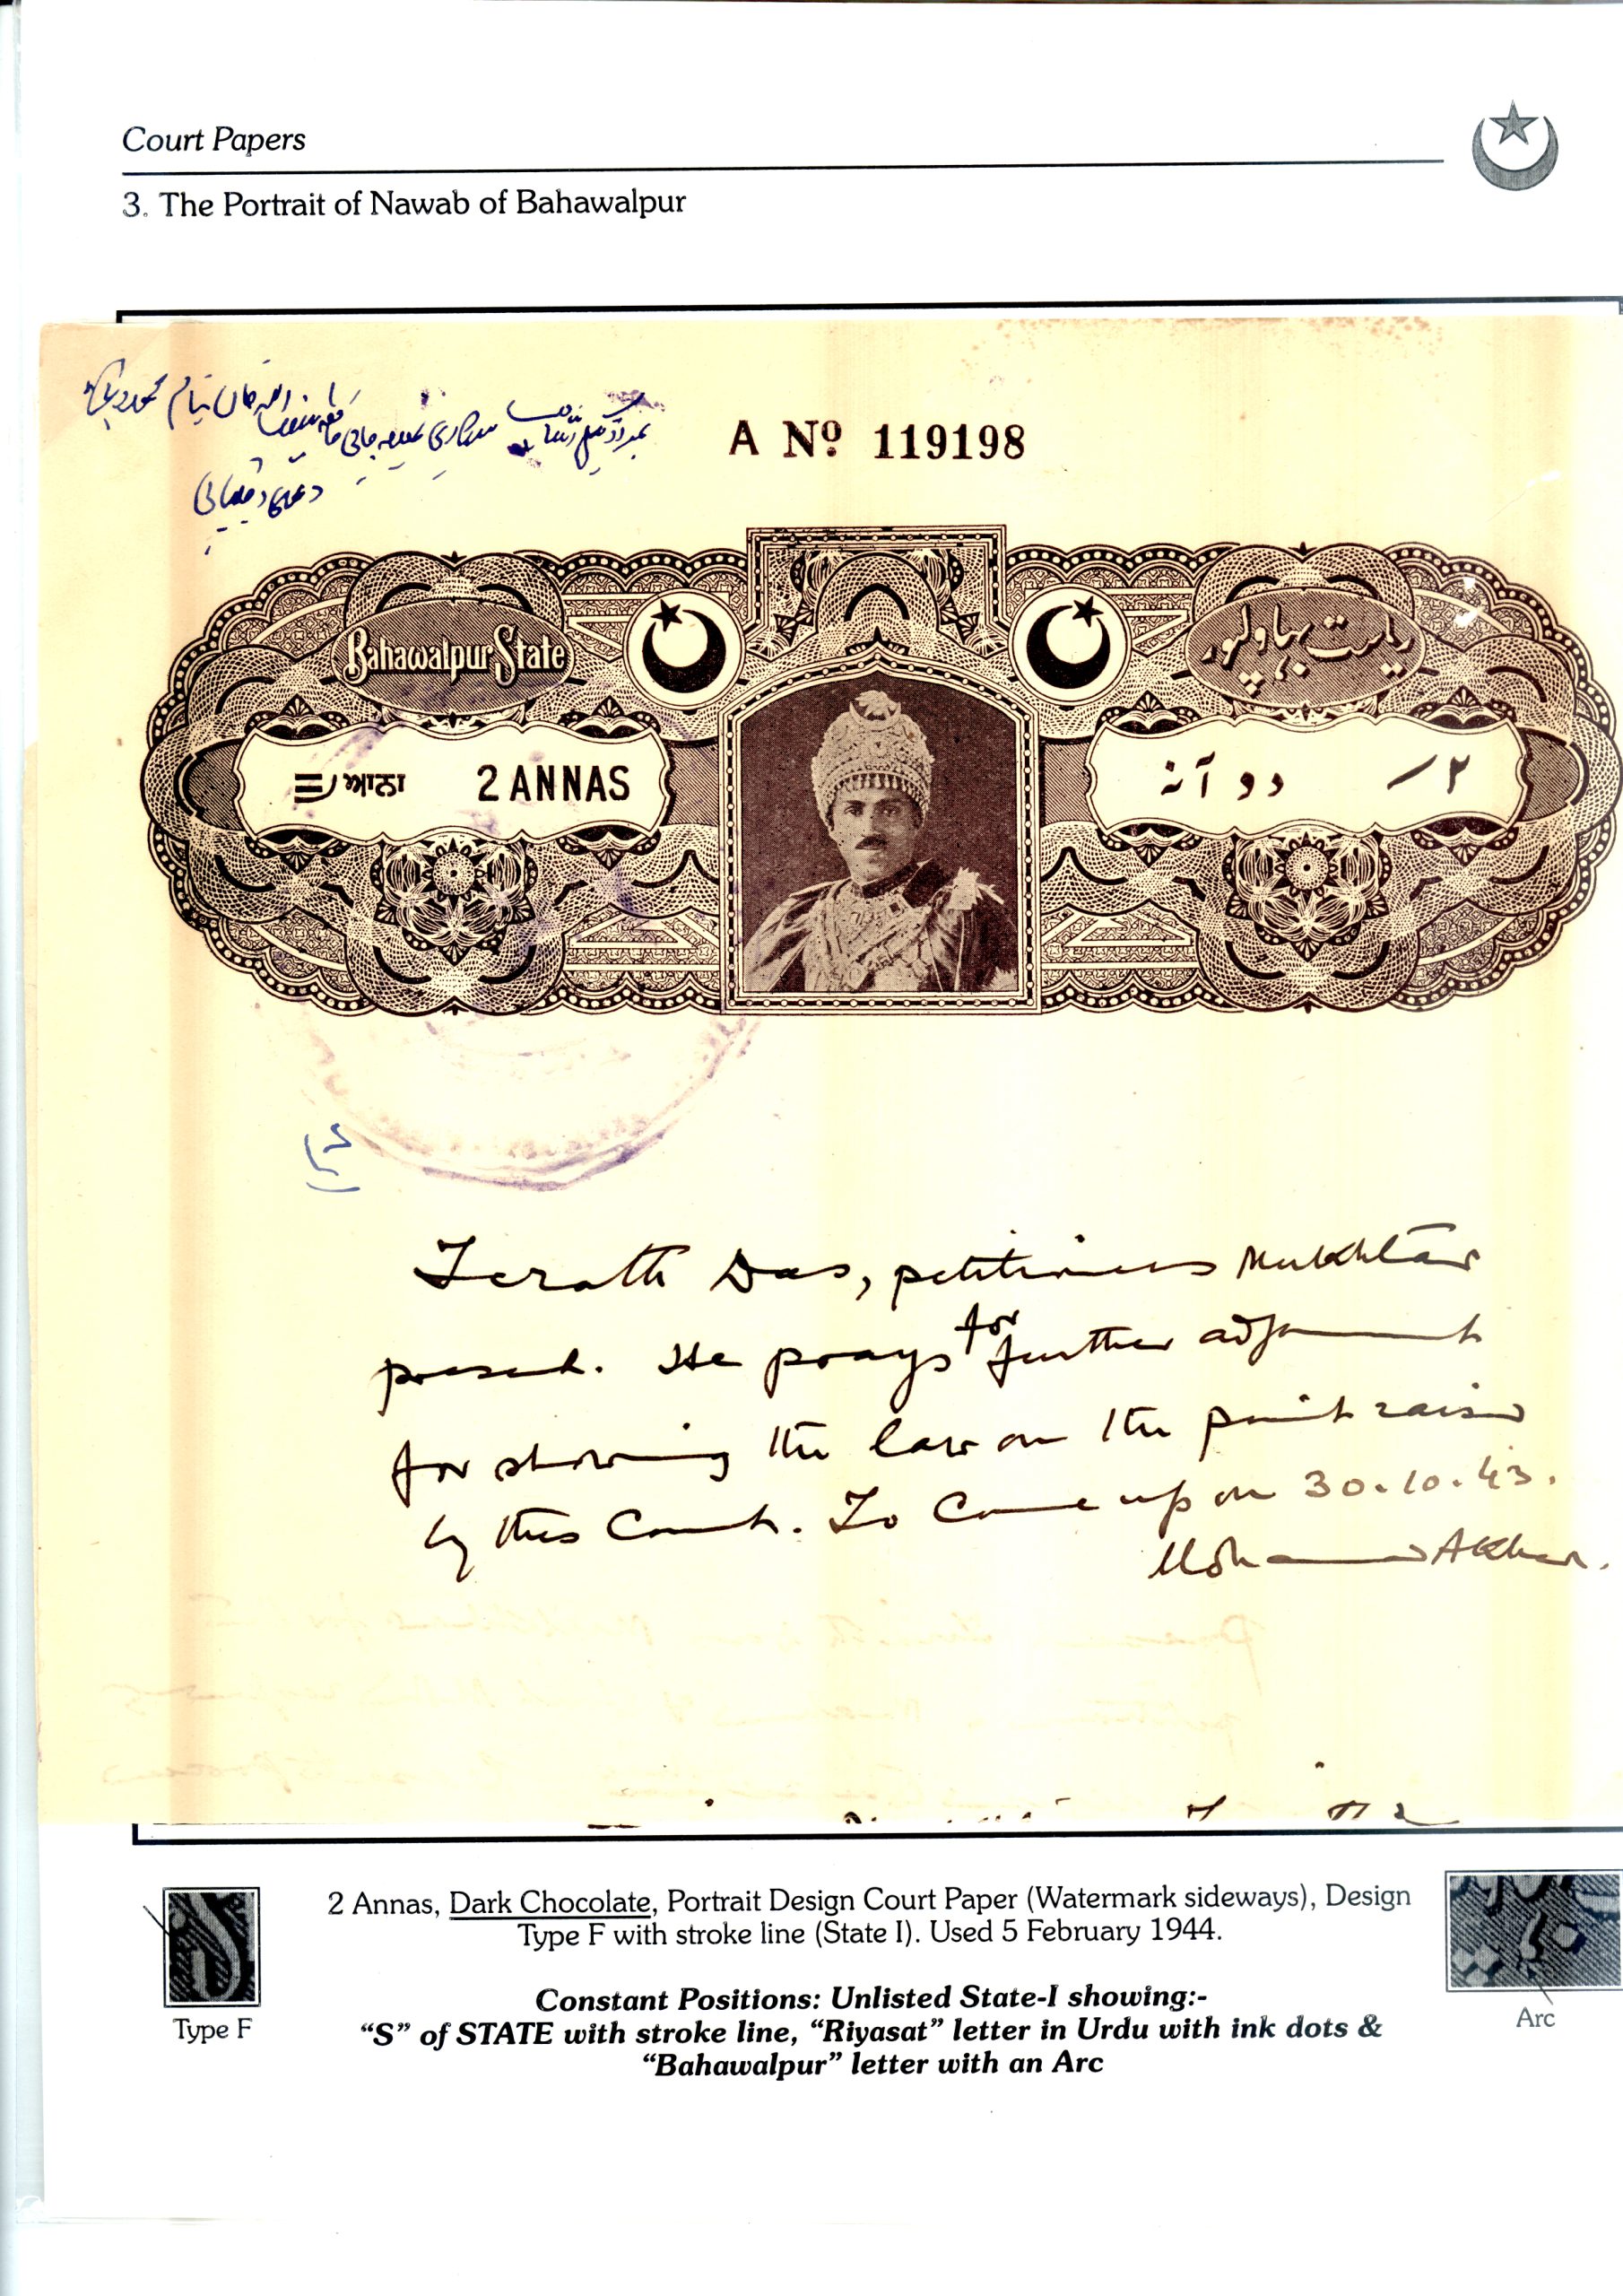 Court Papers
3. The Portrait of Nawab of Bahawalpur
A Nº 119198
Bahawalpur State
ریاست بہاولپور
ਆਨਾ 2 ANNAS
دو آنہ ۲/
Terath Das, petitioners Mukhtar
present. He prays for further adjournment
for showing the law on the point raised
by this Court. To come up on 30.10.43.
Mohammad Akbar.
2 Annas, Dark Chocolate, Portrait Design Court Paper (Watermark sideways), Design
Type F with stroke line (State I). Used 5 February 1944.
Constant Positions: Unlisted State-I showing:-
"S" of STATE with stroke line, "Riyasat" letter in Urdu with ink dots &
"Bahawalpur" letter with an Arc
Type F
Arc